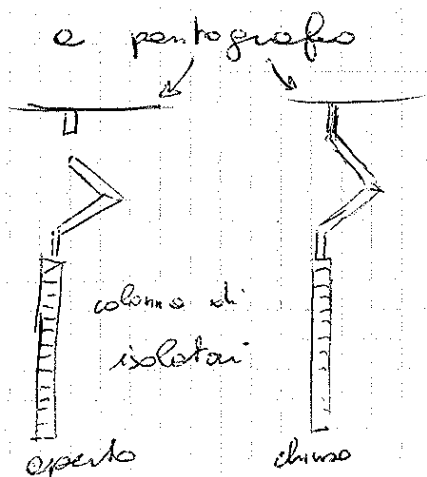 a pantografo
colonna di
isolatori
aperto chiuso